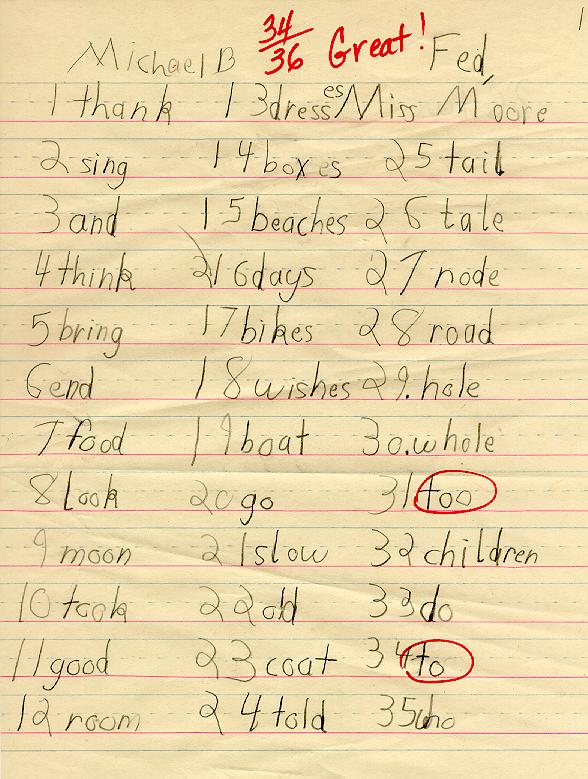 1
Michael B 34/36 Great! Fed,
1 thank 13 dresses Miss Moore
2 sing 14 boxes 25 tail
3 and 15 beaches 26 tale
4 think 16 days 27 rode
5 bring 17 bikes 28 road
6 end 18 wishes 29. hole
7 food 19 boat 30. whole
8 look 20 go 31 too
9 moon 21 slow 32 children
10 took 22 old 33 do
11 good 23 coat 34 to
12 room 24 told 35 who